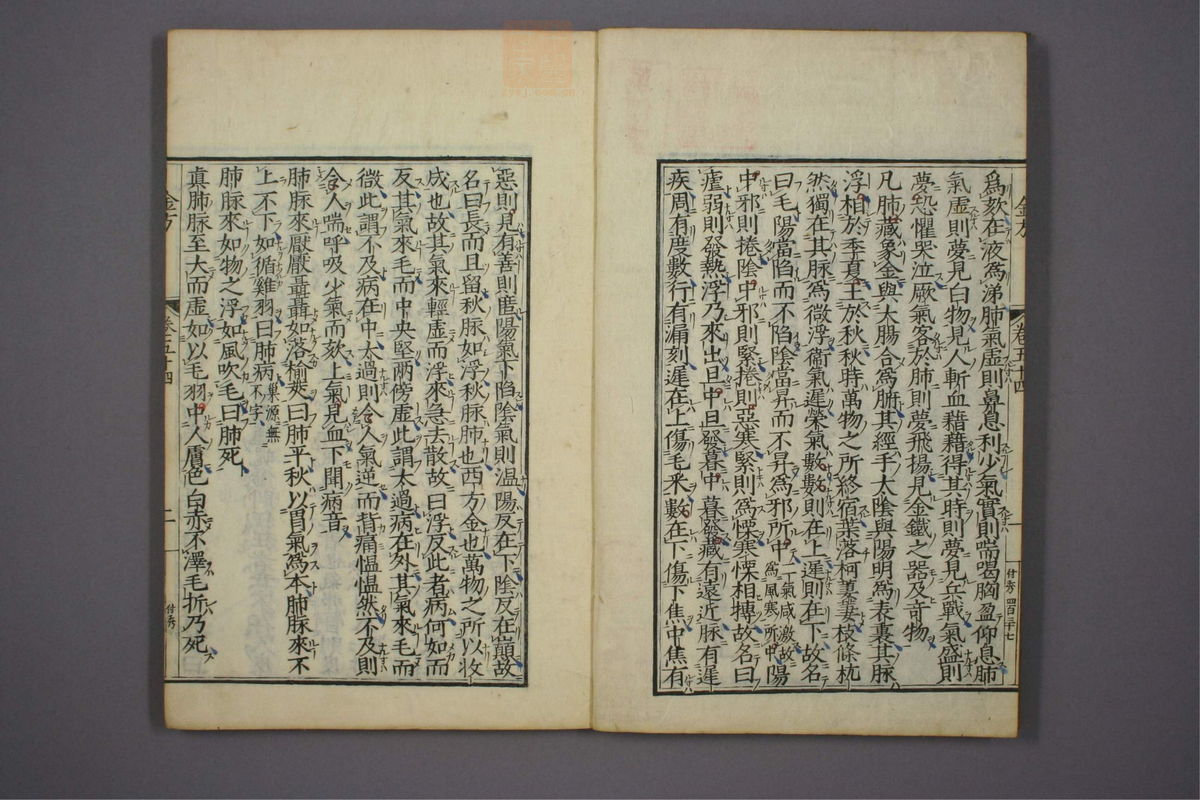 爲欬在液爲涕肺氣虛則鼻息利少氣實則喘喝胸盈仰息肺
氣虛則夢見白物見人斬血藉藉得其時則夢見兵戰氣盛則
夢恐懼哭泣厥氣客於肺則夢飛揚見金鐵之器及奇物
凡肺藏象金與大腸合爲腑其經手太陰與陽明爲表裏其脈
浮相於季夏王於秋秋時萬物之所終宿葉落柯萋萋枝條杌
然獨在其脈爲微浮衞氣遲榮氣數數則在上遲則在下故名
曰毛陽當陷而不陷陰當昇而不昇爲邪所中爲風寒所中陽
中邪則捲陰中邪則緊捲則惡寒緊則爲慄寒慄相搏故名曰
瘧弱則發熱浮乃來出旦中旦發暮中暮發藏有遠近脈有遲
疾周有度數行有漏刻遲在上傷毛釆數在下傷下焦中焦有
金方
卷五十四
四百三十七
惡則見有善則匿陽氣下陷陰氣則溫陽反在下陰反在巔故
名曰長而且留秋脈如浮秋脈肺也西方金也萬物之所以收
成也故其氣來輕虛而浮來急去散故曰浮反此者病何如而
反其氣來毛而中央堅兩傍虛此謂太過病在外其氣來毛而
微此謂不及病在中太過則令人氣逆而背痛慍慍然不及則
令人喘呼吸少氣而欬上氣見血下聞病音
肺脈來厭厭聶聶如落榆莢曰肺平秋以胃氣爲本肺脈來不
上不下如循雞羽曰肺病巢源無不字
肺脈來如物之浮如風吹毛曰肺死
真肺脈至大而虛如以毛羽中人膚色白赤不澤毛折乃死
金方
卷五十四